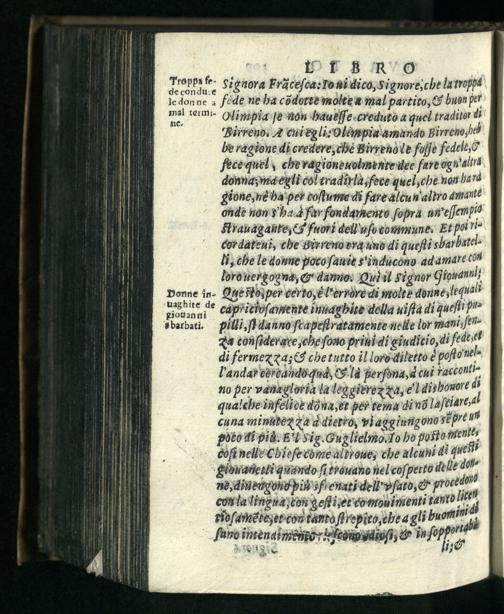 LIBRO
Troppa fe-
de conduce
le donne a
mal termi-
ne.
Signora Frãcesca: Io ui dico, Signore, che la troppa
fede ne ha cõdotte molte a mal partito, & buon per
Olimpia se non hauesse creduto a quel traditor di
Birreno. A cui egli: Olimpia amando Birreno, heb
be ragione di credere, che Birreno le fosse fedele, &
fece quel, che ragioneuolmente dee fare ogn'altra
donna; ma egli col tradirla, fece quel, che non ha ra
gione, nè ha per costume di fare alcun'altro amante
onde non s'ha à far fondamento sopra un'essempio
strauagante, & fuori dell'uso commune. Et poi ri-
cordateui, che Birreno era uno di questi sbarbatel-
li, che le donne poco sauie s'inducono ad amare con
loro uergogna, & danno. Quì il Signor Giouanni;
Donne in-
uaghite de
giouanni
sbarbati.
Questo, per certo, è l'errore di molte donne, lequali
capricciosamente inuaghite della uista di questi pu-
pilli, si danno scapestratamente nelle lor mani, sen-
za considerare, che sono priui di giudicio, di fede, et
di fermezza; & che tutto il loro diletto è posto nel-
l'andar cercando quà, & là persona, à cui racconti-
no per vanagloria la leggierezza, e'l dishonore di
qualche infelice dõna, et per tema di nõ lasciare, al
cuna minutezza a dietro, vi aggiungono sẽpre un
poco di più. E'l Sig. Guglielmo. Io ho posto mente,
così nelle Chiese come altroue, che alcuni di questi
giouanetti quando si trouano nel cospetto delle don-
ne, diuengono più sfrenati dell'vsato, & procedono
con la lingua, con gesti, et co mouimenti tanto licen
tiosamẽte, et con tanto strepito, che a gli huomini di
sano intendimento riescono odiosi, & insopportabi
li; &